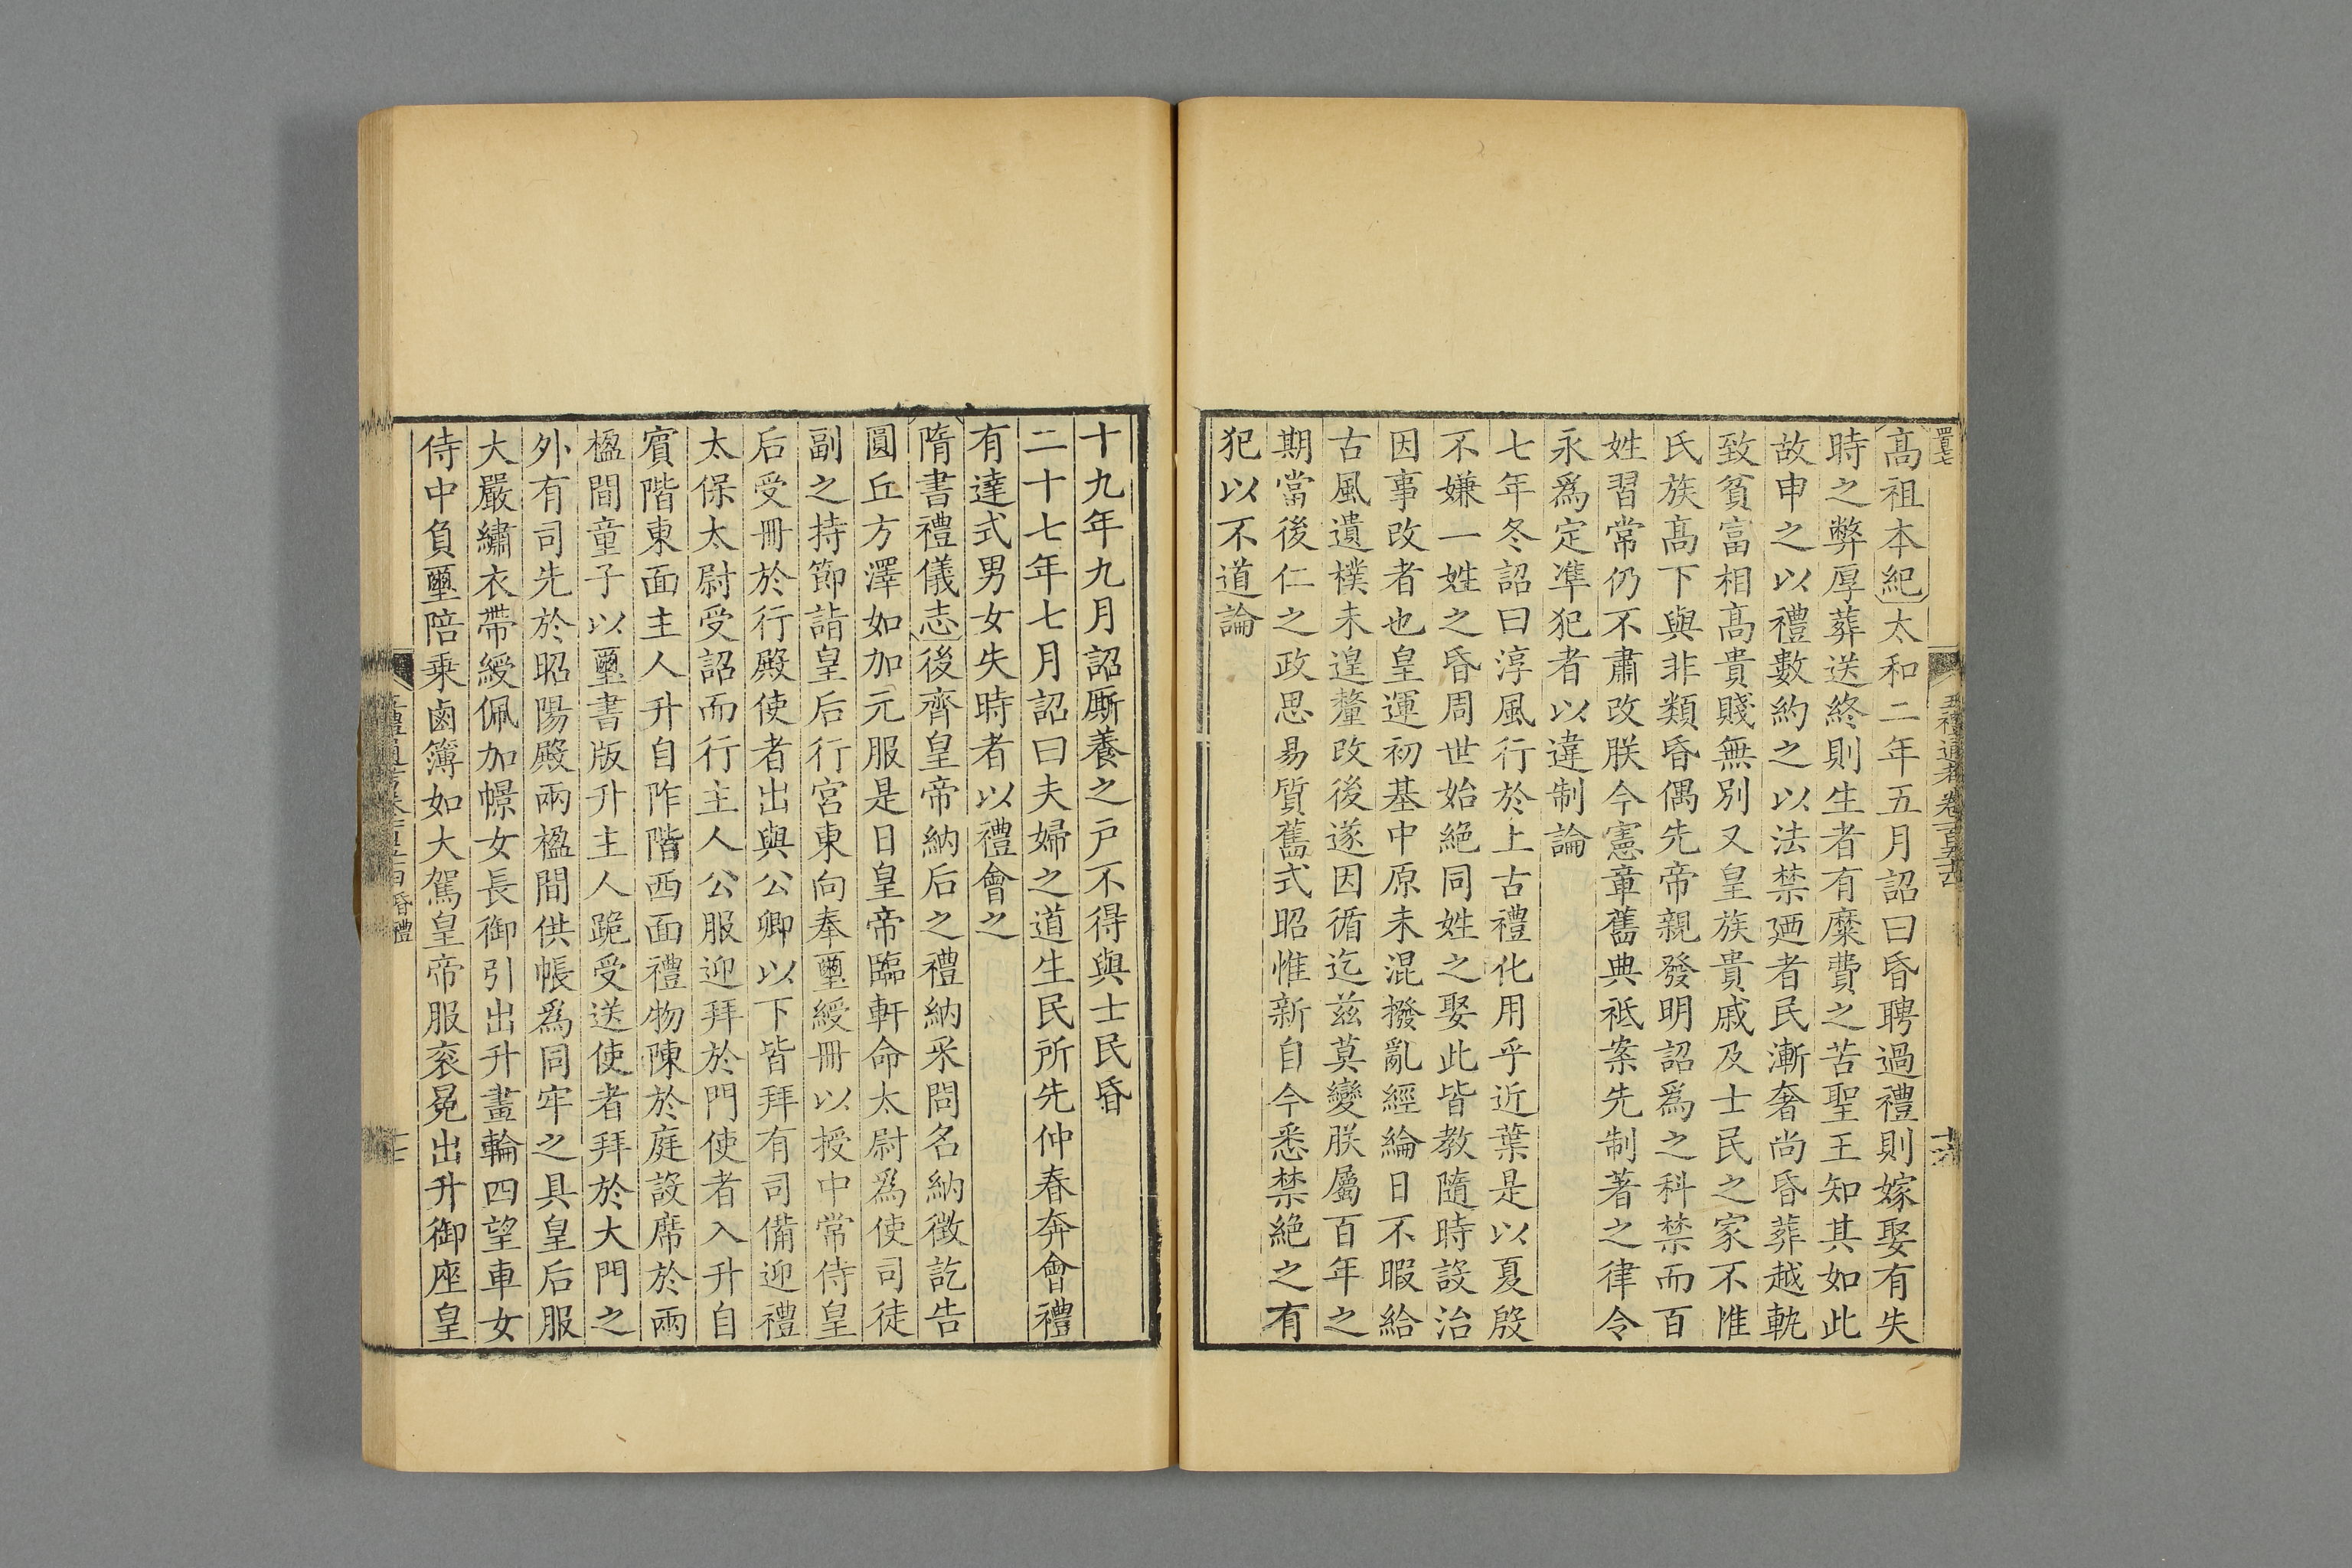 五禮通考卷一百五十四
十六
高祖本紀太和二年五月詔曰昏聘過禮則嫁娶有失
時之弊厚葬送終則生者有糜費之苦聖王知其如此
故申之以禮數約之以法禁廼者民漸奢尚昏葬越軌
致貧富相高貴賤無別又皇族貴戚及士民之家不惟
氏族高下與非類昏偶先帝親發明詔爲之科禁而百
姓習常仍不肅改朕今憲章舊典祗案先制著之律令
永爲定準犯者以違制論
七年冬詔曰淳風行於上古禮化用乎近葉是以夏殷
不嫌一姓之昏周世始絕同姓之娶此皆教隨時設治
因事改者也皇運初基中原未混撥亂經綸日不暇給
古風遺樸未遑釐改後遂因循迄茲莫變朕屬百年之
期當後仁之政思易質舊式昭惟新自今悉禁絕之有
犯以不道論
十九年九月詔厮養之戸不得與士民昏
二十七年七月詔曰夫婦之道生民所先仲春奔會禮
有達式男女失時者以禮會之
隋書禮儀志後齊皇帝納后之禮納采問名納徵訖告
圓丘方澤如加元服是日皇帝臨軒命太尉爲使司徒
副之持節詣皇后行宮東向奉璽綬冊以授中常侍皇
后受冊於行殿使者出與公卿以下皆拜有司備迎禮
太保太尉受詔而行主人公服迎拜於門使者入升自
賓階東面主人升自阼階西面禮物陳於庭設席於兩
楹間童子以璽書版升主人跪受送使者拜於大門之
外有司先於昭陽殿兩楹間供帳爲同牢之具皇后服
大嚴繡衣帶綬佩加幜女長御引出升畫輪四望車女
侍中負璽陪乘鹵簿如大駕皇帝服衮冕出升御座皇
昏禮